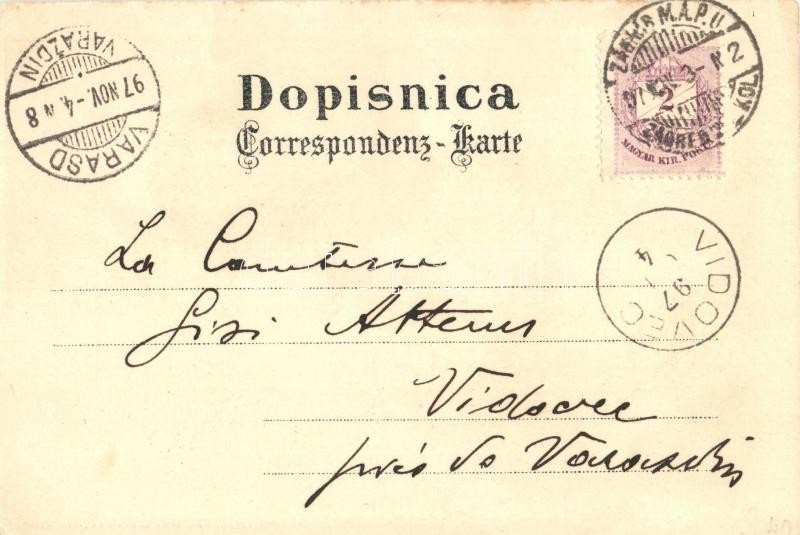 VARAŽDIN
97 NOV. - 4. N 8
VARASD
Dopisnica
Correspondenz-Karte
ZÁGRÁB M.Á.P.U.
ZAGREB
2
MAGYAR KIR. POSTA
VIDOVEC
97
4
La Comtesse
Gisi Attems
Vidovec
près de Varasdin